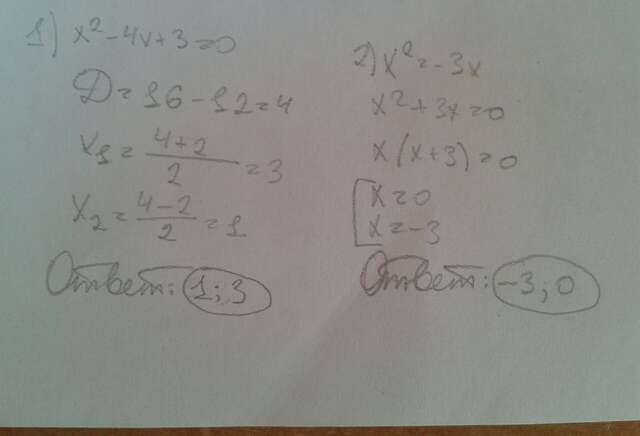 1) x²-4x+3=0
D=16-12=4
x₁=(4+2)/2=3
x₂=(4-2)/2=1
Ответ: 1; 3
2) x²=-3x
x²+3x=0
x(x+3)=0
[x=0
x=-3
Ответ: -3; 0